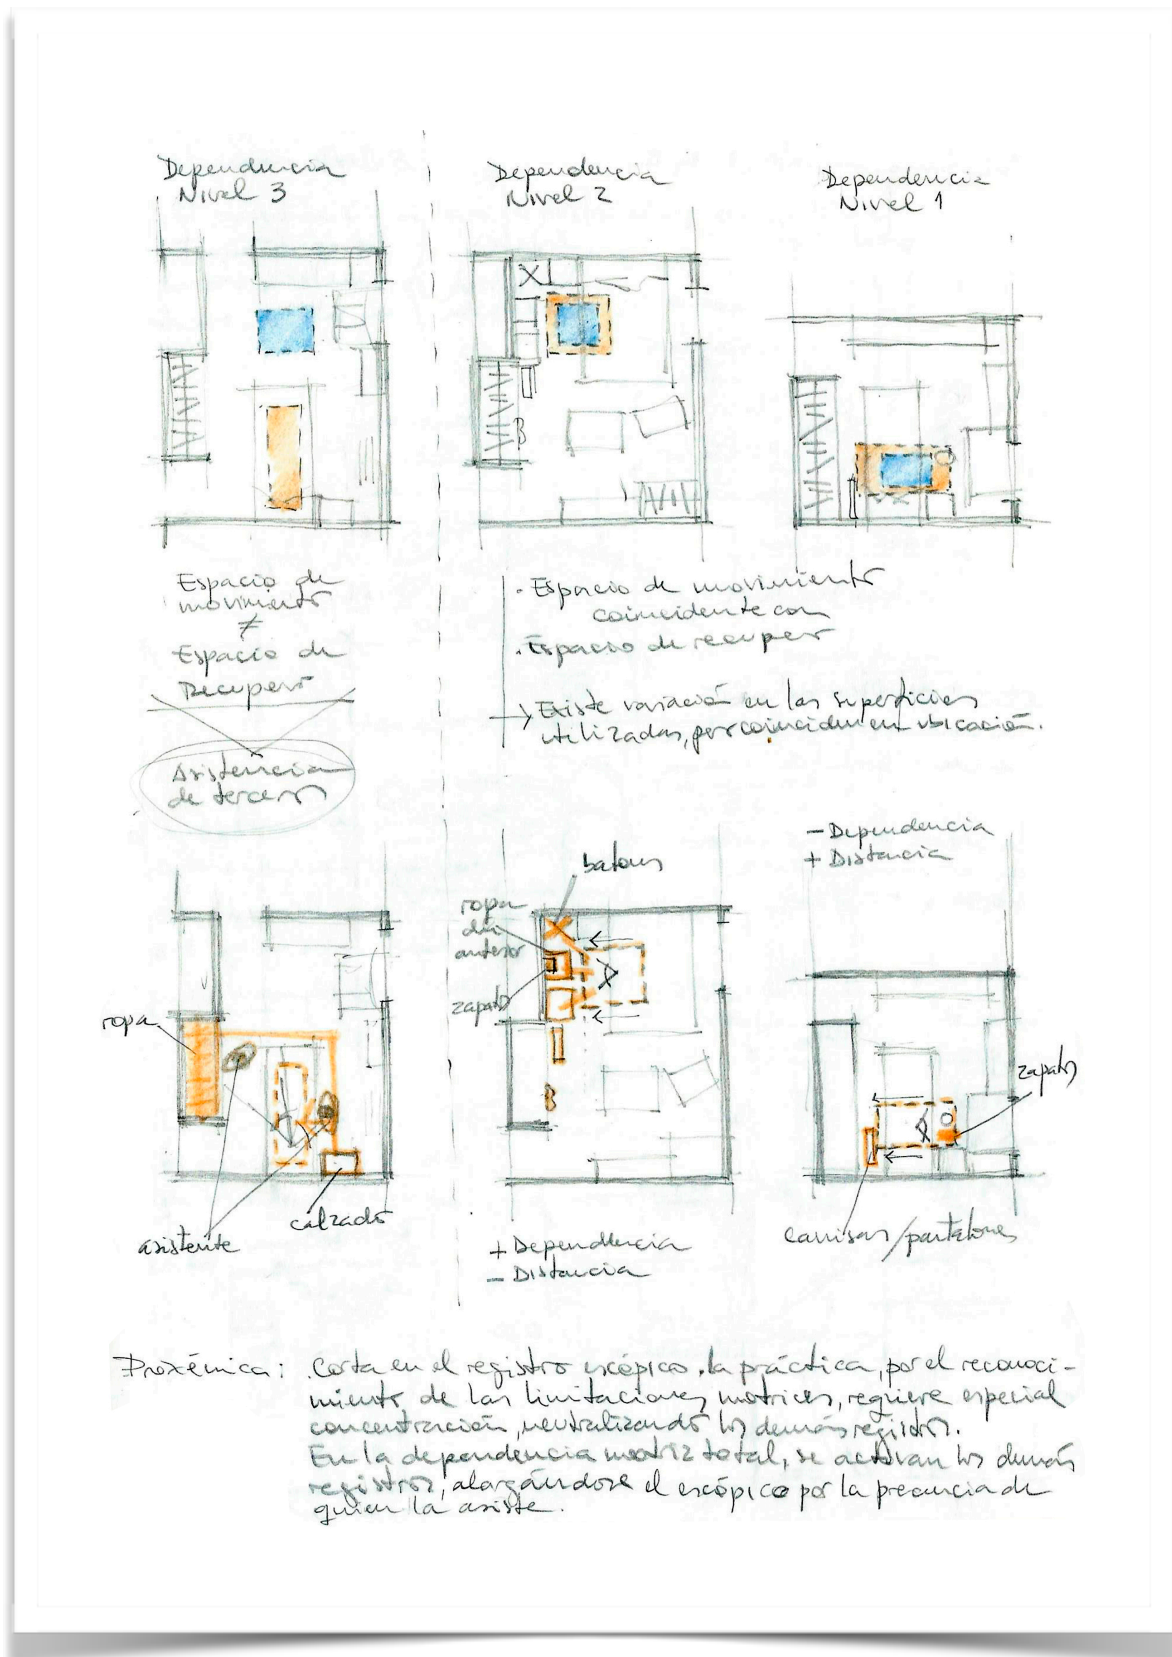 Dependencia
Nivel 3
Dependencia
Nivel 2
Dependencia
Nivel 1
Espacio de
movimiento
≠
Espacio de
Recupero
Asistencia
de terceros
· Espacio de movimiento
coincidente con
· Espacio de recupero
→ Existe variación en las superficies
utilizadas, pero coinciden en ubicación.
ropa
asistente
calzado
batones
ropa
día
anterior
zapatos
+ Dependencia
- Distancia
- Dependencia
+ Distancia
zapatos
camisas/pantalones
Proxémica: Corta en el registro escópico. La práctica, por el reconoci-
miento de las limitaciones motrices, requiere especial
concentración, neutralizando los demás registros.
En la dependencia motriz total, se activan los demás
registros, alargándose el escópico por la presencia de
quien la asiste.